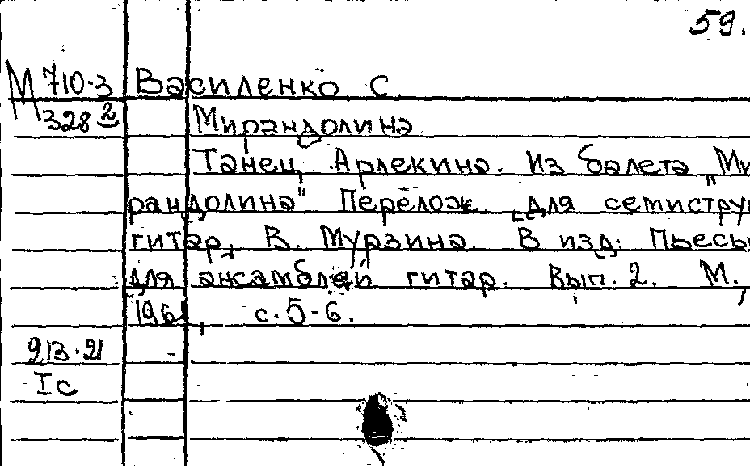 59.
М 710-3 Василенко С.
328 2 Мирандолина
Танец Арлекина. Из балета "Ми
рандолина" Перелож. для семистру
гитар, В. Мурзина. В изд: Пьесы
для ансамблей гитар. Вып. 2. М.,
1961, с. 5-6.
913.21
Iс